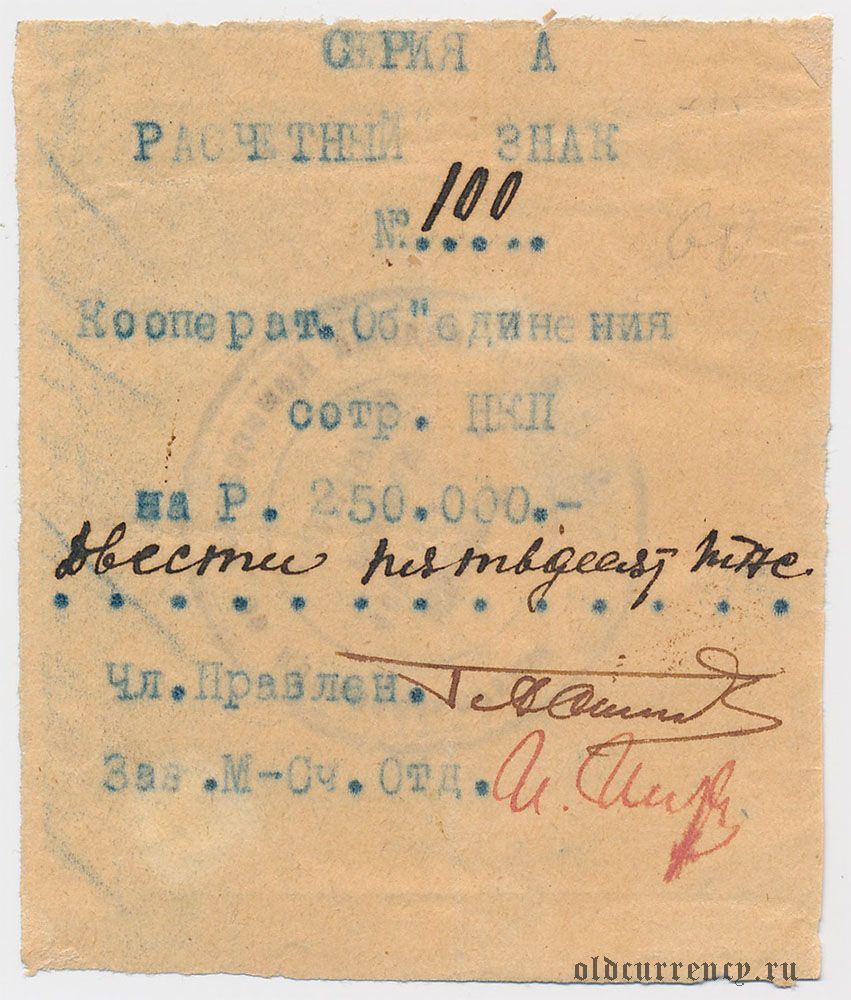 СЕРИЯ А
РАСЧЕТНЫЙ" ЗНАК
№.100....
Кооперат.Об"единения
сотр. НКП
на Р. 250.000.-
Двести пятьдесят тыс.
. . . . . . . . . . . . .
Чл.Правлен.
Зав.М-Сч.Отд.
oldcurrency.ru